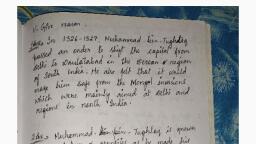 V. Give reason
Ans. In 1326-1327, Muhammad bin-Tughlaq
passed an order to shift the capital from
Delhi to Daulatabad in the Deccan region
of South India. He also felt that it would
keep him safe from the Mongol invasions
which were mainly aimed at Delhi and
regions in north India.
Ans. Muhammad bin-Tughlaq is known
as he made his